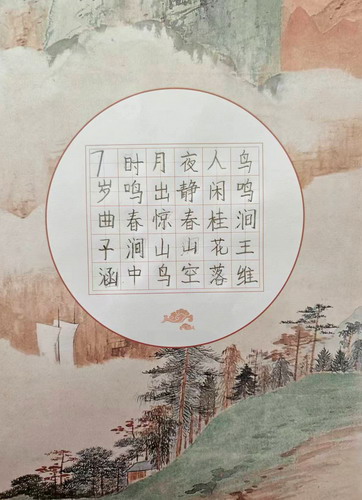 鸟鸣涧王维
人闲桂花落
夜静春山空
月出惊山鸟
时鸣春涧中
7岁曲子涵